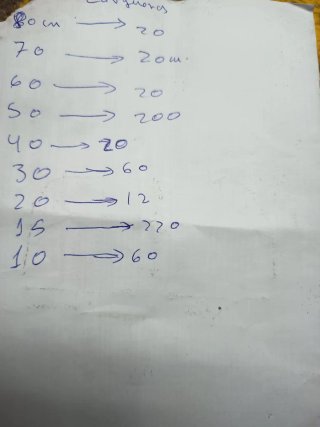 80cm → 20
70 → 20m.
60 → 20
50 → 200
40 → 20
30 → 60
20 → 12
15 → 220
10 → 60